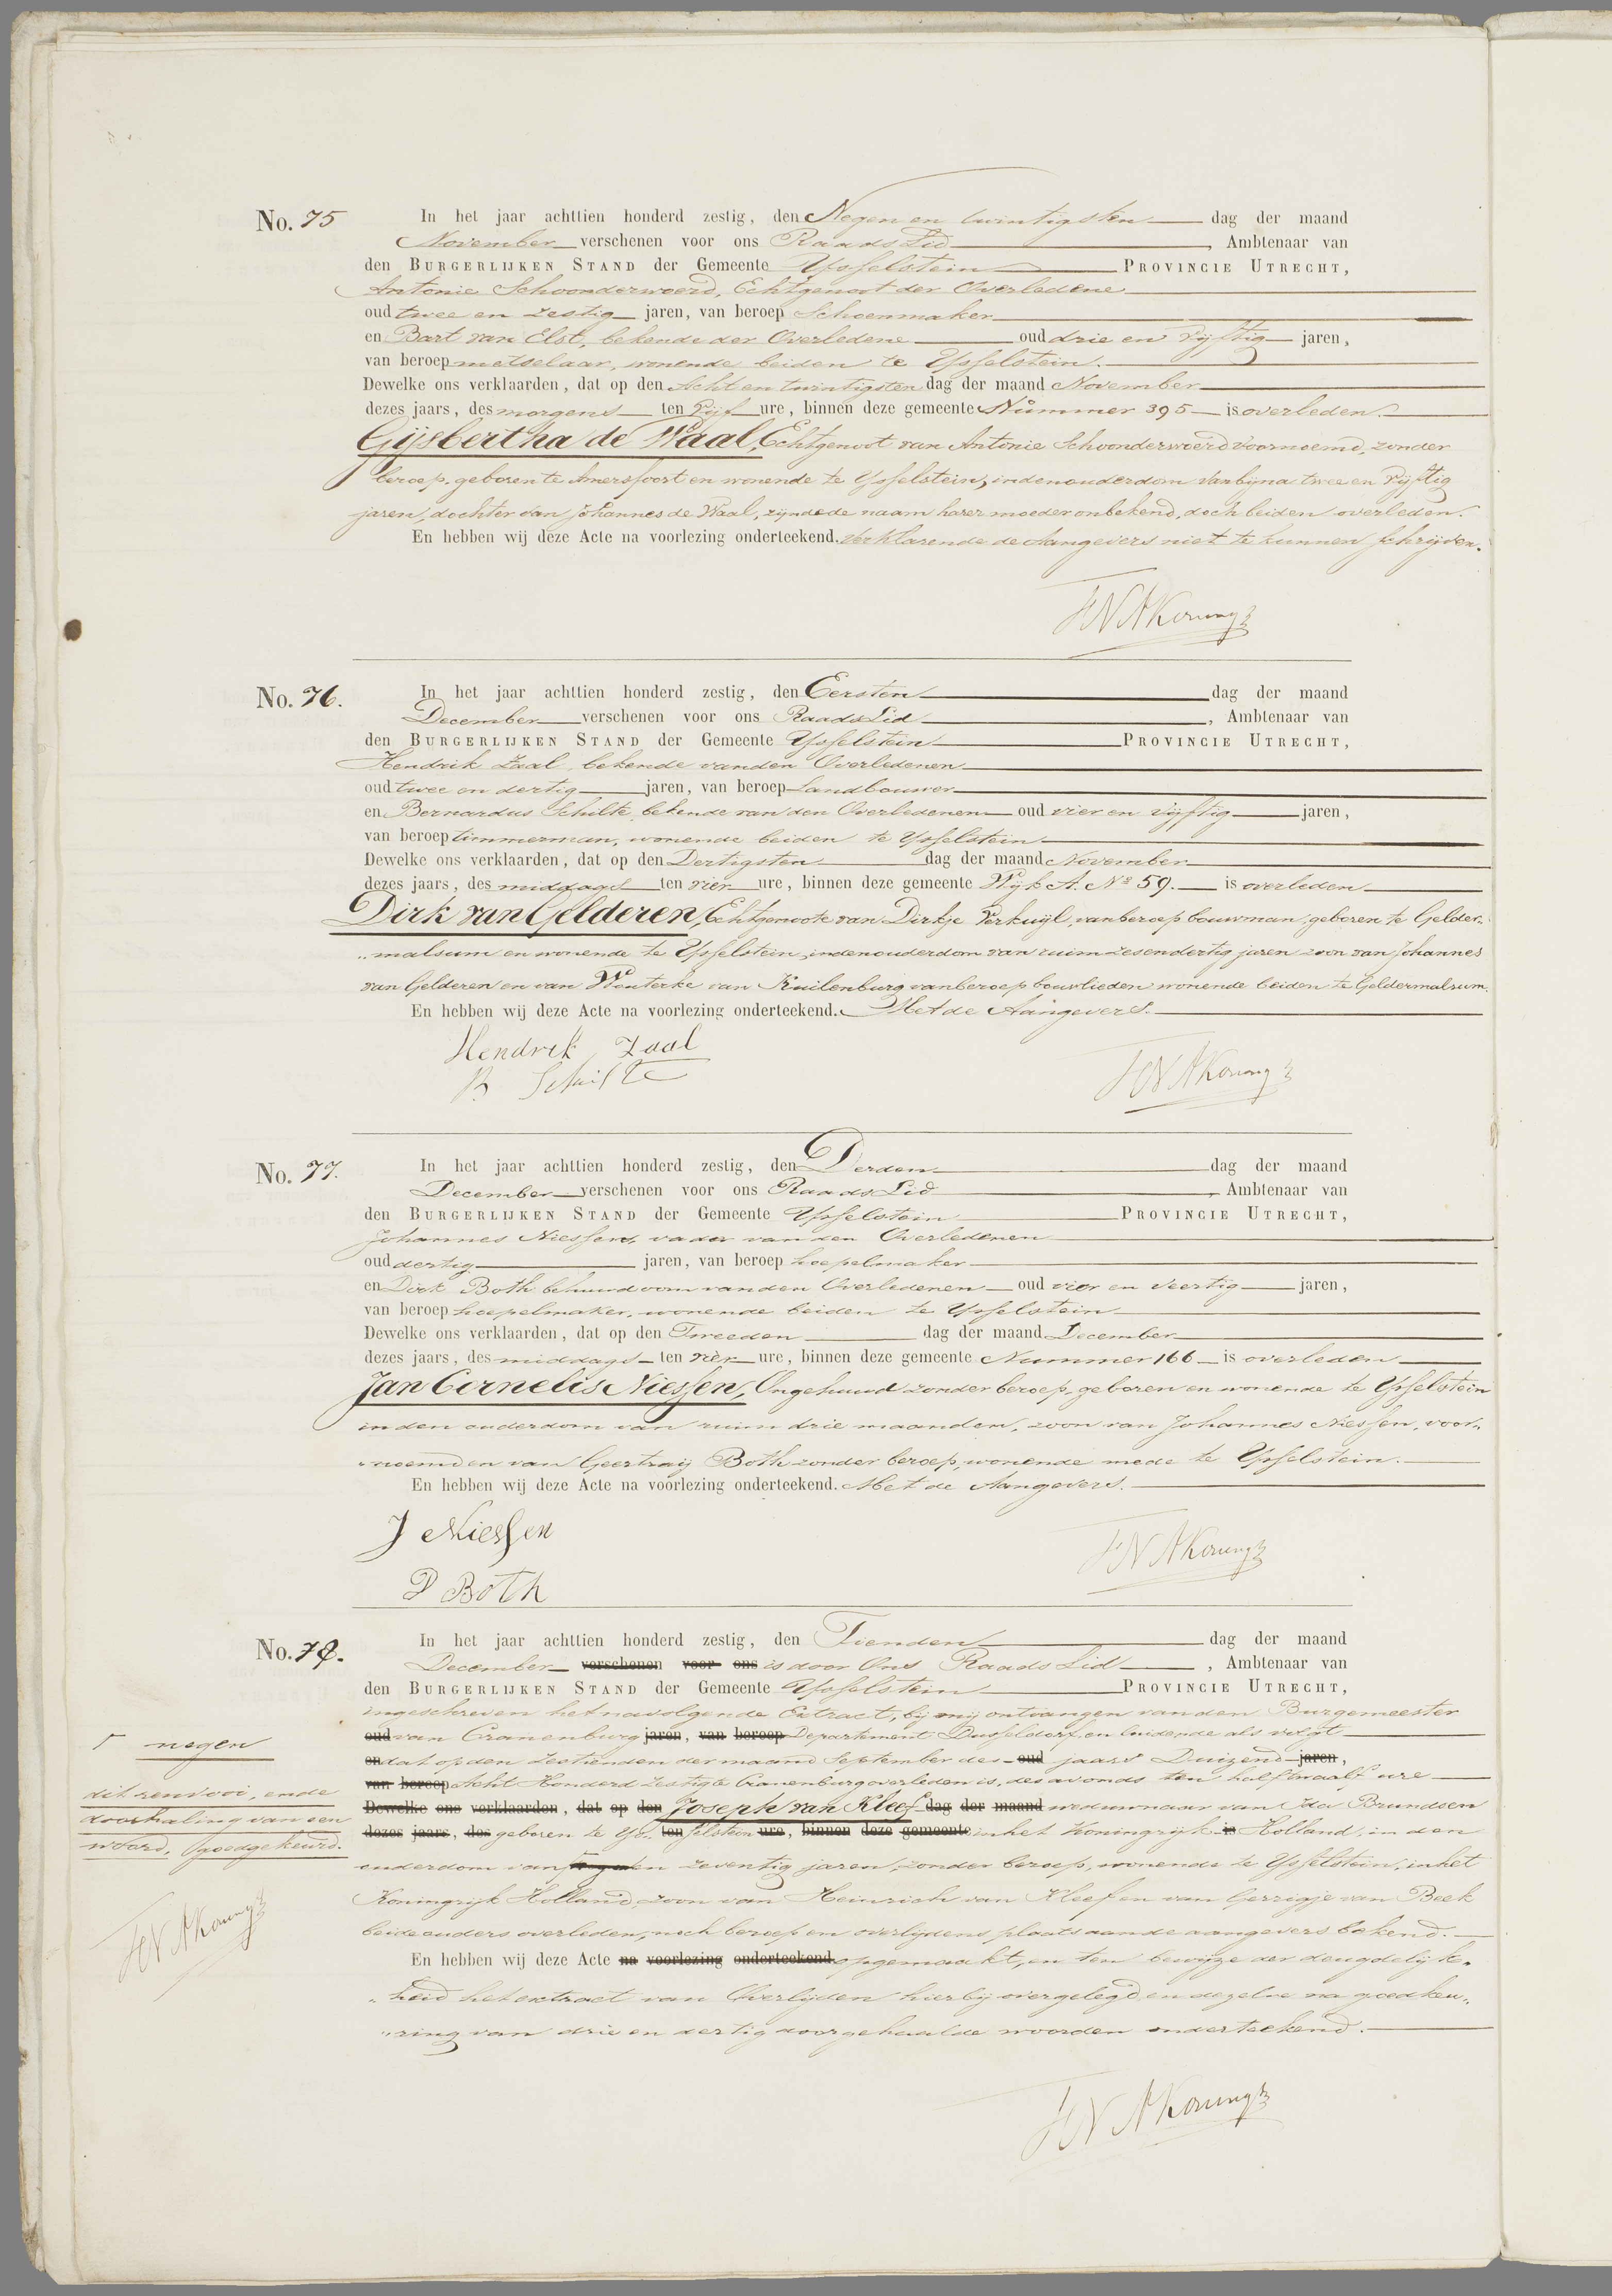 No. 75
In het jaar achttien honderd zestig, den Negen en twintigsten dag der maand
November verschenen voor ons Raads Lid, Ambtenaar van
den Burgerlijken Stand der Gemeente Ysselstein Provincie Utrecht,
Antonie Schoonderwoerd, Echtgenoot der Overledene
oud twee en zestig jaren, van beroep Schoenmaker
en Bart van Elst, bekende der Overledene oud drie en vijftig jaren,
van beroep metselaar, wonende beiden te Ysselstein.
Dewelke ons verklaarden, dat op den Acht en twintigsten dag der maand November
dezes jaars, des morgens ten Vijf ure, binnen deze gemeente Nummer 395 is overleden.
Gijsbertha de Waal, Echtgenoot van Antonie Schoonderwoerd voornoemd, zonder
beroep, geboren te Amersfoort en wonende te Ysselstein, in den ouderdom van bijna twee en vijftig
jaren, dochter van Johannes de Waal, zijnde de naam harer moeder onbekend, doch beiden overleden.
En hebben wij deze Acte na voorlezing onderteekend. Verklarende de Aangevers niet te kunnen schrijven.
No. 76.
In het jaar achttien honderd zestig, den Eersten dag der maand
December verschenen voor ons Raads Lid, Ambtenaar van
den Burgerlijken Stand der Gemeente Ysselstein Provincie Utrecht,
Hendrik Zaal, bekende van den Overledenen
oud twee en dertig jaren, van beroep Landbouwer
en Bernardus Schilte, bekende van den Overledenen oud vier en vijftig jaren,
van beroep timmerman, wonende beiden te Ysselstein
Dewelke ons verklaarden, dat op den Dertigsten dag der maand November
dezes jaars, des middags ten vier ure, binnen deze gemeente Wijk A. No 59. is overleden
Dirk van Gelderen, Echtgenoote van Dirkje Verkuijl, van beroep bouwman, geboren te Gelder-
malsum en wonende te Ysselstein, in den ouderdom van ruim zes en dertig jaren zoon van Johannes
van Gelderen en van Wouterke van Kuilenburg van beroep bouwlieden wonende beiden te Geldermalsum.
En hebben wij deze Acte na voorlezing onderteekend. Met de Aangevers.
Hendrik Zaal
B Schilte
No. 77.
In het jaar achttien honderd zestig, den Derden dag der maand
December verschenen voor ons Raads Lid, Ambtenaar van
den Burgerlijken Stand der Gemeente Ysselstein Provincie Utrecht,
Johannes Niessen, vader van den Overledenen
oud dertig jaren, van beroep hoepelmaker
en Dirk Both behuwdoom van den Overledenen oud vier en veertig jaren,
van beroep hoepelmaker, wonende beiden te Ysselstein
Dewelke ons verklaarden, dat op den Tweeden dag der maand December
dezes jaars, des middags ten vier ure, binnen deze gemeente Nummer 166 is overleden
Jan Cornelis Niessen, Ongehuwd zonder beroep, geboren en wonende te Ysselstein
in den ouderdom van ruim drie maanden, zoon van Johannes Niessen, voor-
noemd en van Geertruij Both zonder beroep, wonende mede te Ysselstein.
En hebben wij deze Acte na voorlezing onderteekend. Met de Aangevers.
J Niessen
D Both
No. 78.
In het jaar achttien honderd zestig, den Tienden dag der maand
December verschenen voor ons is door Ons Raads Lid, Ambtenaar van
den Burgerlijken Stand der Gemeente Ysselstein Provincie Utrecht,
ingeschreven het navolgende Extract, bij mij ontvangen van den Burgemeester
oud van Cranenburg jaren, van beroep Departement Dusseldorf, en luidende als volgt
en dat op den zestienden der maand September des oud jaars Duizend jaren,
van beroep Acht Honderd Zestig te Cranenburg overleden is, des avonds ten half twaalf ure
Dewelke ons verklaarden, dat op den Joseph van Kleef dag der maand weduwnaar van Ida Brundsen
dezes jaars, des geboren te Ys- ten selstein ure, binnen deze gemeente in het Koningrijk is Holland, in den
ouderdom van en zeventig jaren, zonder beroep, wonende te Ysselstein, in het
Koningrijk Holland, zoon van Heinrich van Kleef en van Gerrigje van Beek
beide ouders overleden, noch beroep en overlijdens plaats aan de aangevers bekend.
En hebben wij deze Acte na voorlezing onderteekend opgemaakt, en ten bewijze der deugdelijk-
heid het extract van Overlijden hierbij overgelegd, en dezelve na goedkeu-
ring van drie en dertig doorgehaalde woorden onderteekend.
negen
dit renvooi, en de
doorhaling van een
woord, goedgekeurd.